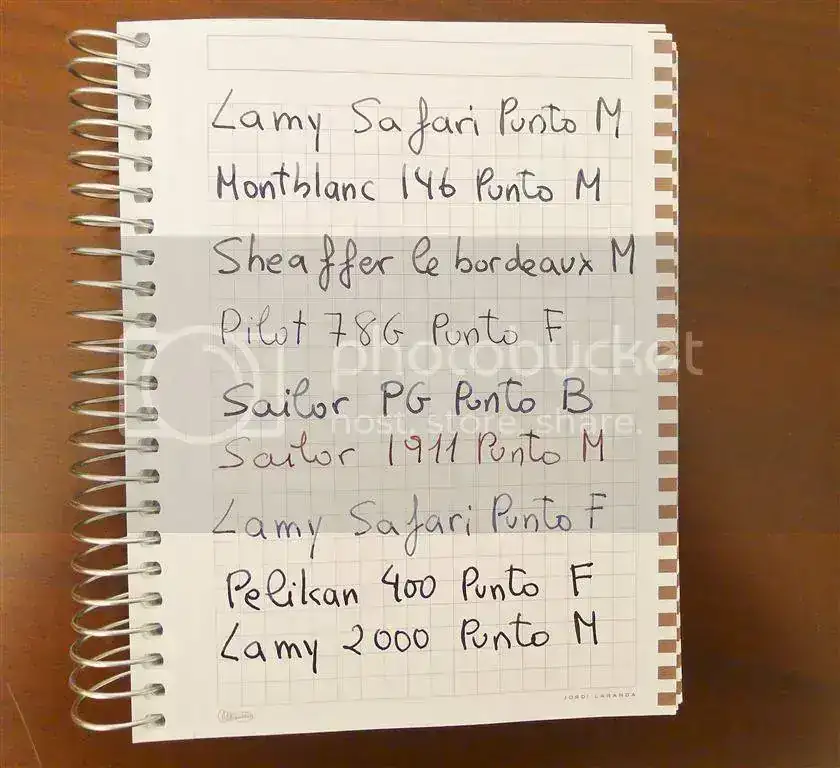 Lamy Safari Punto M
Montblanc 146 Punto M
Sheaffer le bordeaux M
Pilot 78G Punto F
photobucket
Sailor PG Punto B
host. store. share.
Sailor 1911 Punto M
Lamy Safari Punto F
Pelikan 400 Punto F
Lamy 2000 Punto M
JORDI LABANDA